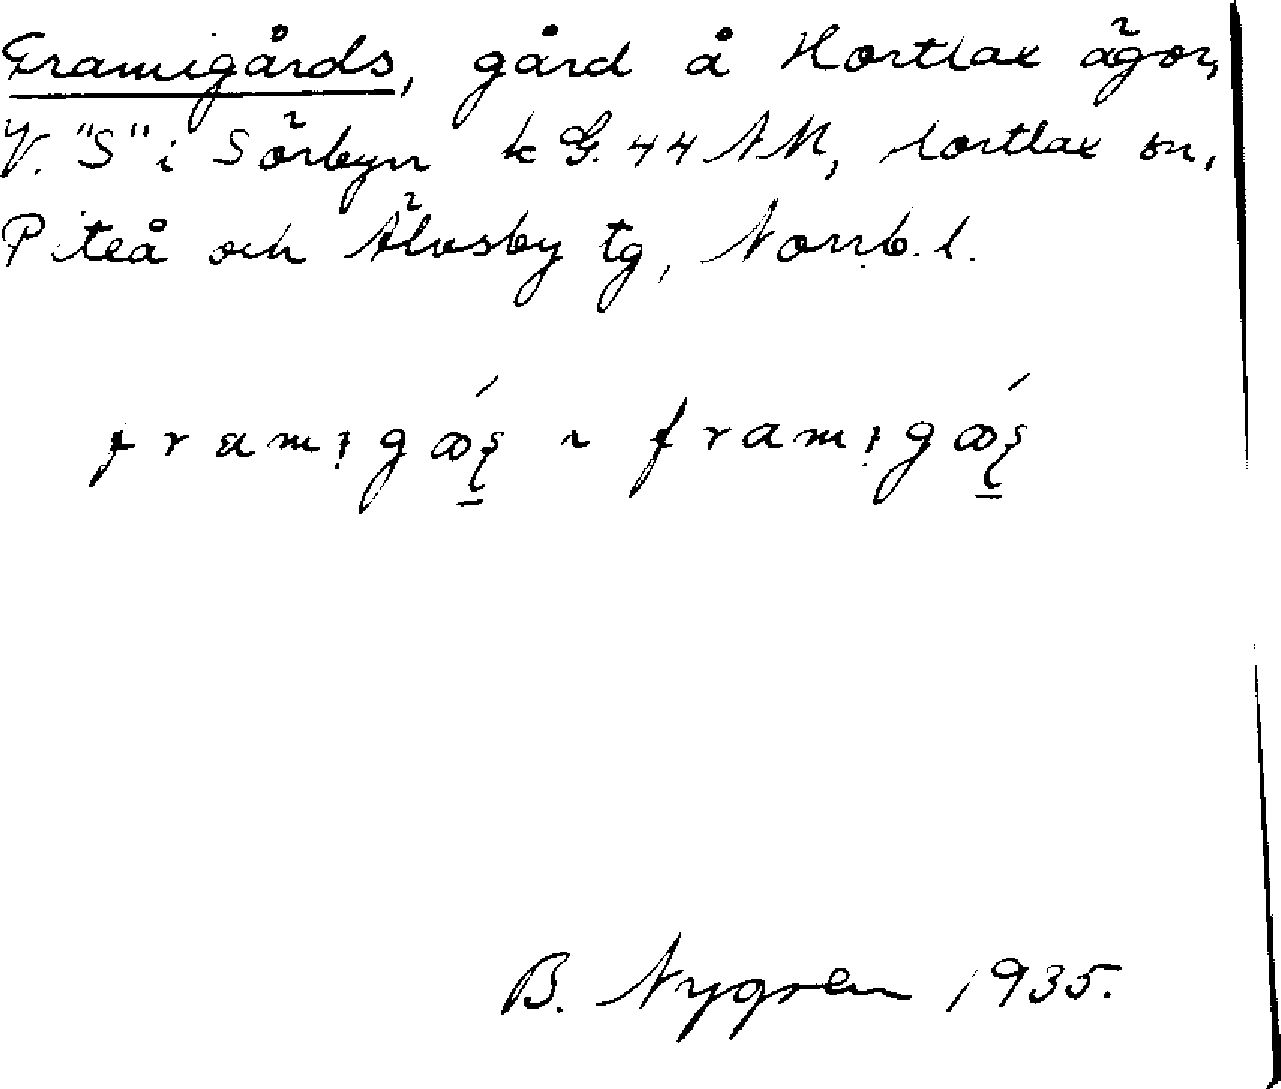 Framigårds, gård å Hortlax ägor,
V. "S" i Sörbyn k G. 44 NM, Hortlax sn,
Piteå och Älvsby tg, Norrb. l.
B. Nygren 1935.